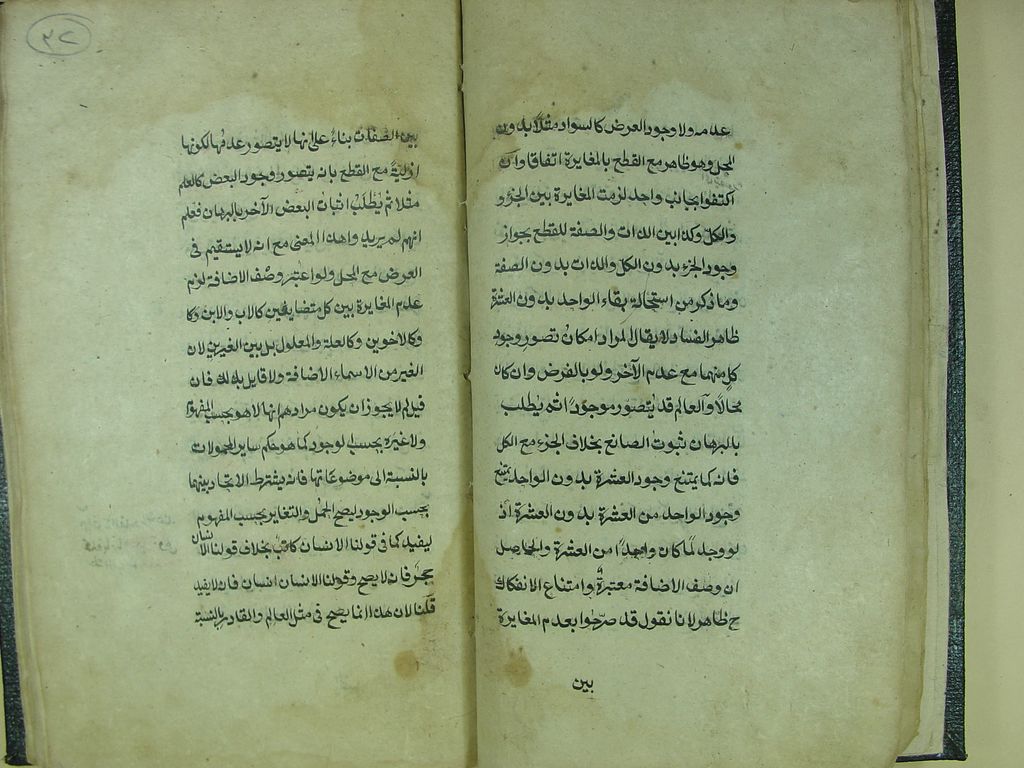 عدمه ولا وجود العرض كالسواد مثلا بدون
المحل وهو ظاهر مع القطع بالمغايرة اتفاقا وان
اكتفوا بجانب واحد لزمت المغايرة بين الجزؤ
والكلّ وكذا بين الذات والصفة للقطع بجواز
وجود الجزء بدون الكلّ والذات بدون الصفة
وما ذكر من استحالة بقاء الواحد بدون العشرة
ظاهر الفساد لا يقال المراد امكان تصور وجود
كل منهما مع عدم الآخر ولو بالفرض وان كان
محالاً والعالم قد يتصور موجوداً ثم يطلب
بالبرهان ثبوت الصانع بخلاف الجزء مع الكل
فانه كما يمتنع وجود العشرة بدون الواحد يمتنع
وجود الواحد من العشرة بدون العشرة اذ
لو وجد لما كان واحداً من العشرة والحاصل
ان وصف الاضافة معتبرة وامتناع الانفكاك
ح ظاهر لانا نقول قد صرّحوا بعدم المغايرة
بين
٣٢
بين الصفات بناءً على انها لا يتصور عدمها لكونها
ازليةً مع القطع بانه يتصور وجود البعض كالعلم
مثلا ثم يُطلب اثبات البعض الآخر بالبرهان فعلم
انهم لم يريدوا هذا المعنى مع انه لا يستقيم في
العرض مع المحل ولو اعتبر وصف الاضافة لزم
عدم المغايرة بين كل متضايفين كالاب والابن وكا
وكالاخوين وكالعلة والمعلول بل بين الغيرين لان
الغير من الاسماء الاضافة ولا قايل بذلك فان
قيل لم لا يجوز ان يكون مرادهم انها لا هو بحسب المفهوم
ولا غيره بحسب الوجود كما هو حكم ساير المحمولات
بالنسبة الى موضوعاتها فانه يشترط الاتحاد بينهما
بحسب الوجود ليصح الحمل والتغاير بحسب المفهوم
ليفيد كما في قولنا الانسان كاتب بخلاف قولنا الانسان
حجر فانه لا يصح وقولنا الانسان انسان فانه لا يفيد
قلنا لان هذا انما يصح في مثل العالم والقادر بالنسبة